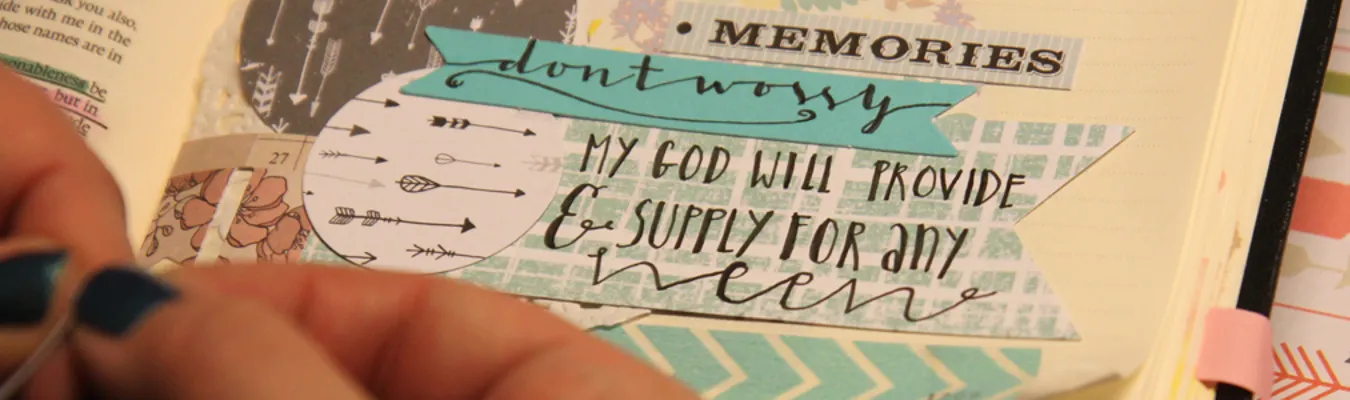 you also,
with me in the
names are in
be
but in
27
• MEMORIES
dont worry
MY GOD WILL PROVIDE
& SUPPLY FOR any
need